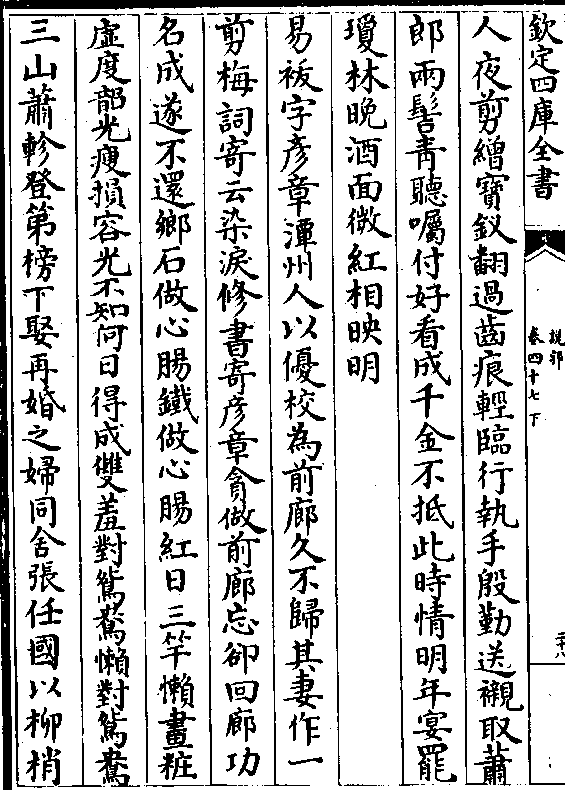 欽定四庫全書
說郛
卷四十七下
二十八
人夜剪繒寶釵翻過齒痕輕臨行執手殷勤送襯取蕭
郎兩鬢靑聽囑付好看成千金不抵此時情明年宴罷
瓊林晩酒面微紅相映明
易祓字彥章潭州人以優校為前廊久不歸其妻作一
剪梅詞寄云染淚修書寄彥章貪做前廊忘卻回廊功
名成遂不還鄉石做心腸鐵做心腸紅日三竿懶畫粧
虛度韶光瘦損容光不知何日得成雙羞對鴛鴦懶對鴛鴦
三山蕭軫登第榜下娶再婚之婦同舍張任國以柳梢